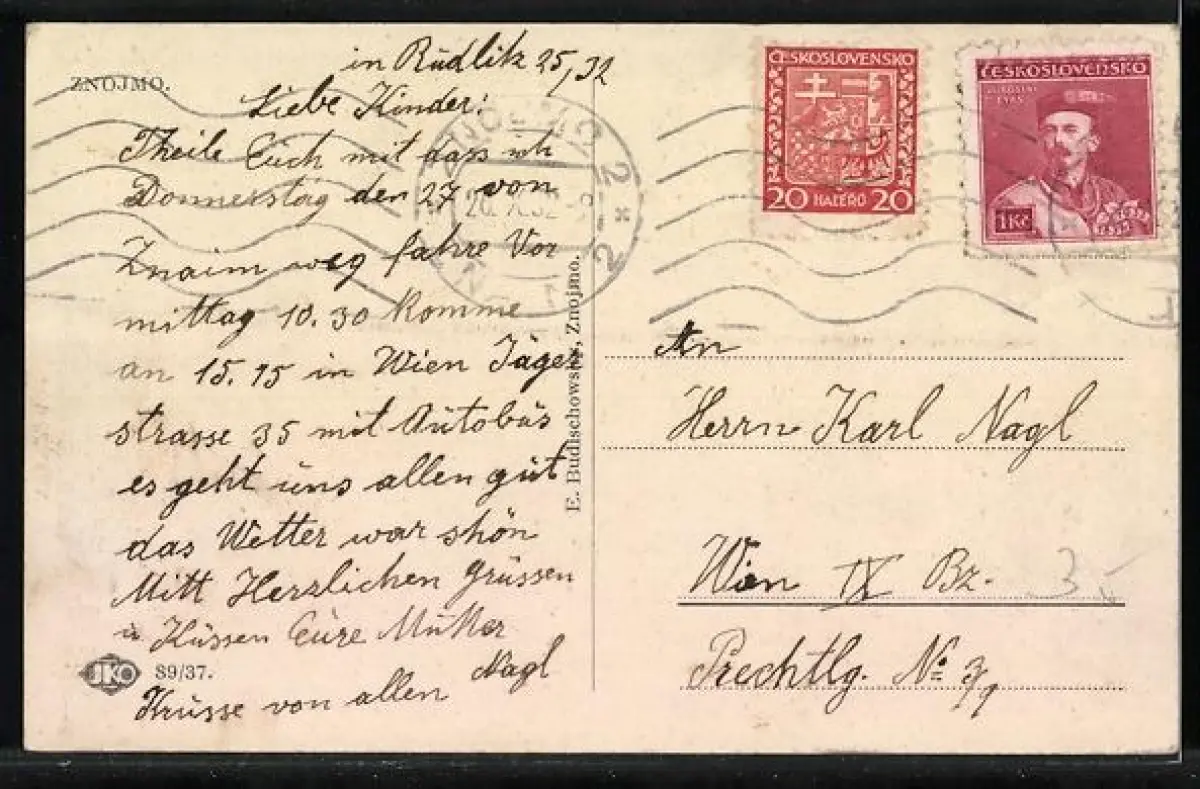 ZNOJMO.
in Rudlitz 25/32
Liebe Kinder!
Theile Euch mit dass ich
Donnerstag den 27 von
Znaim weg fahre Vor
mittag 10.30 Komme
an 15.15 in Wien Jäger
strasse 35 mit Autobus
es geht uns allen gut
das Wetter war shön
Mitt Herzlichen Grüssen
u Küssen Eure Mutter
Nagl
Krüsse von allen
JKO 89/37.
E. Budischowsky, Znojmo.
ČESKOSLOVENSKO
20 HALÉŘŮ 20
ČESKOSLOVENSKO
MIROSLAV
TYRŠ
1 Kč
1832
1932
An
Herrn Karl Nagl
Wien IX Bz.
Prechtlg. No 3/9
35